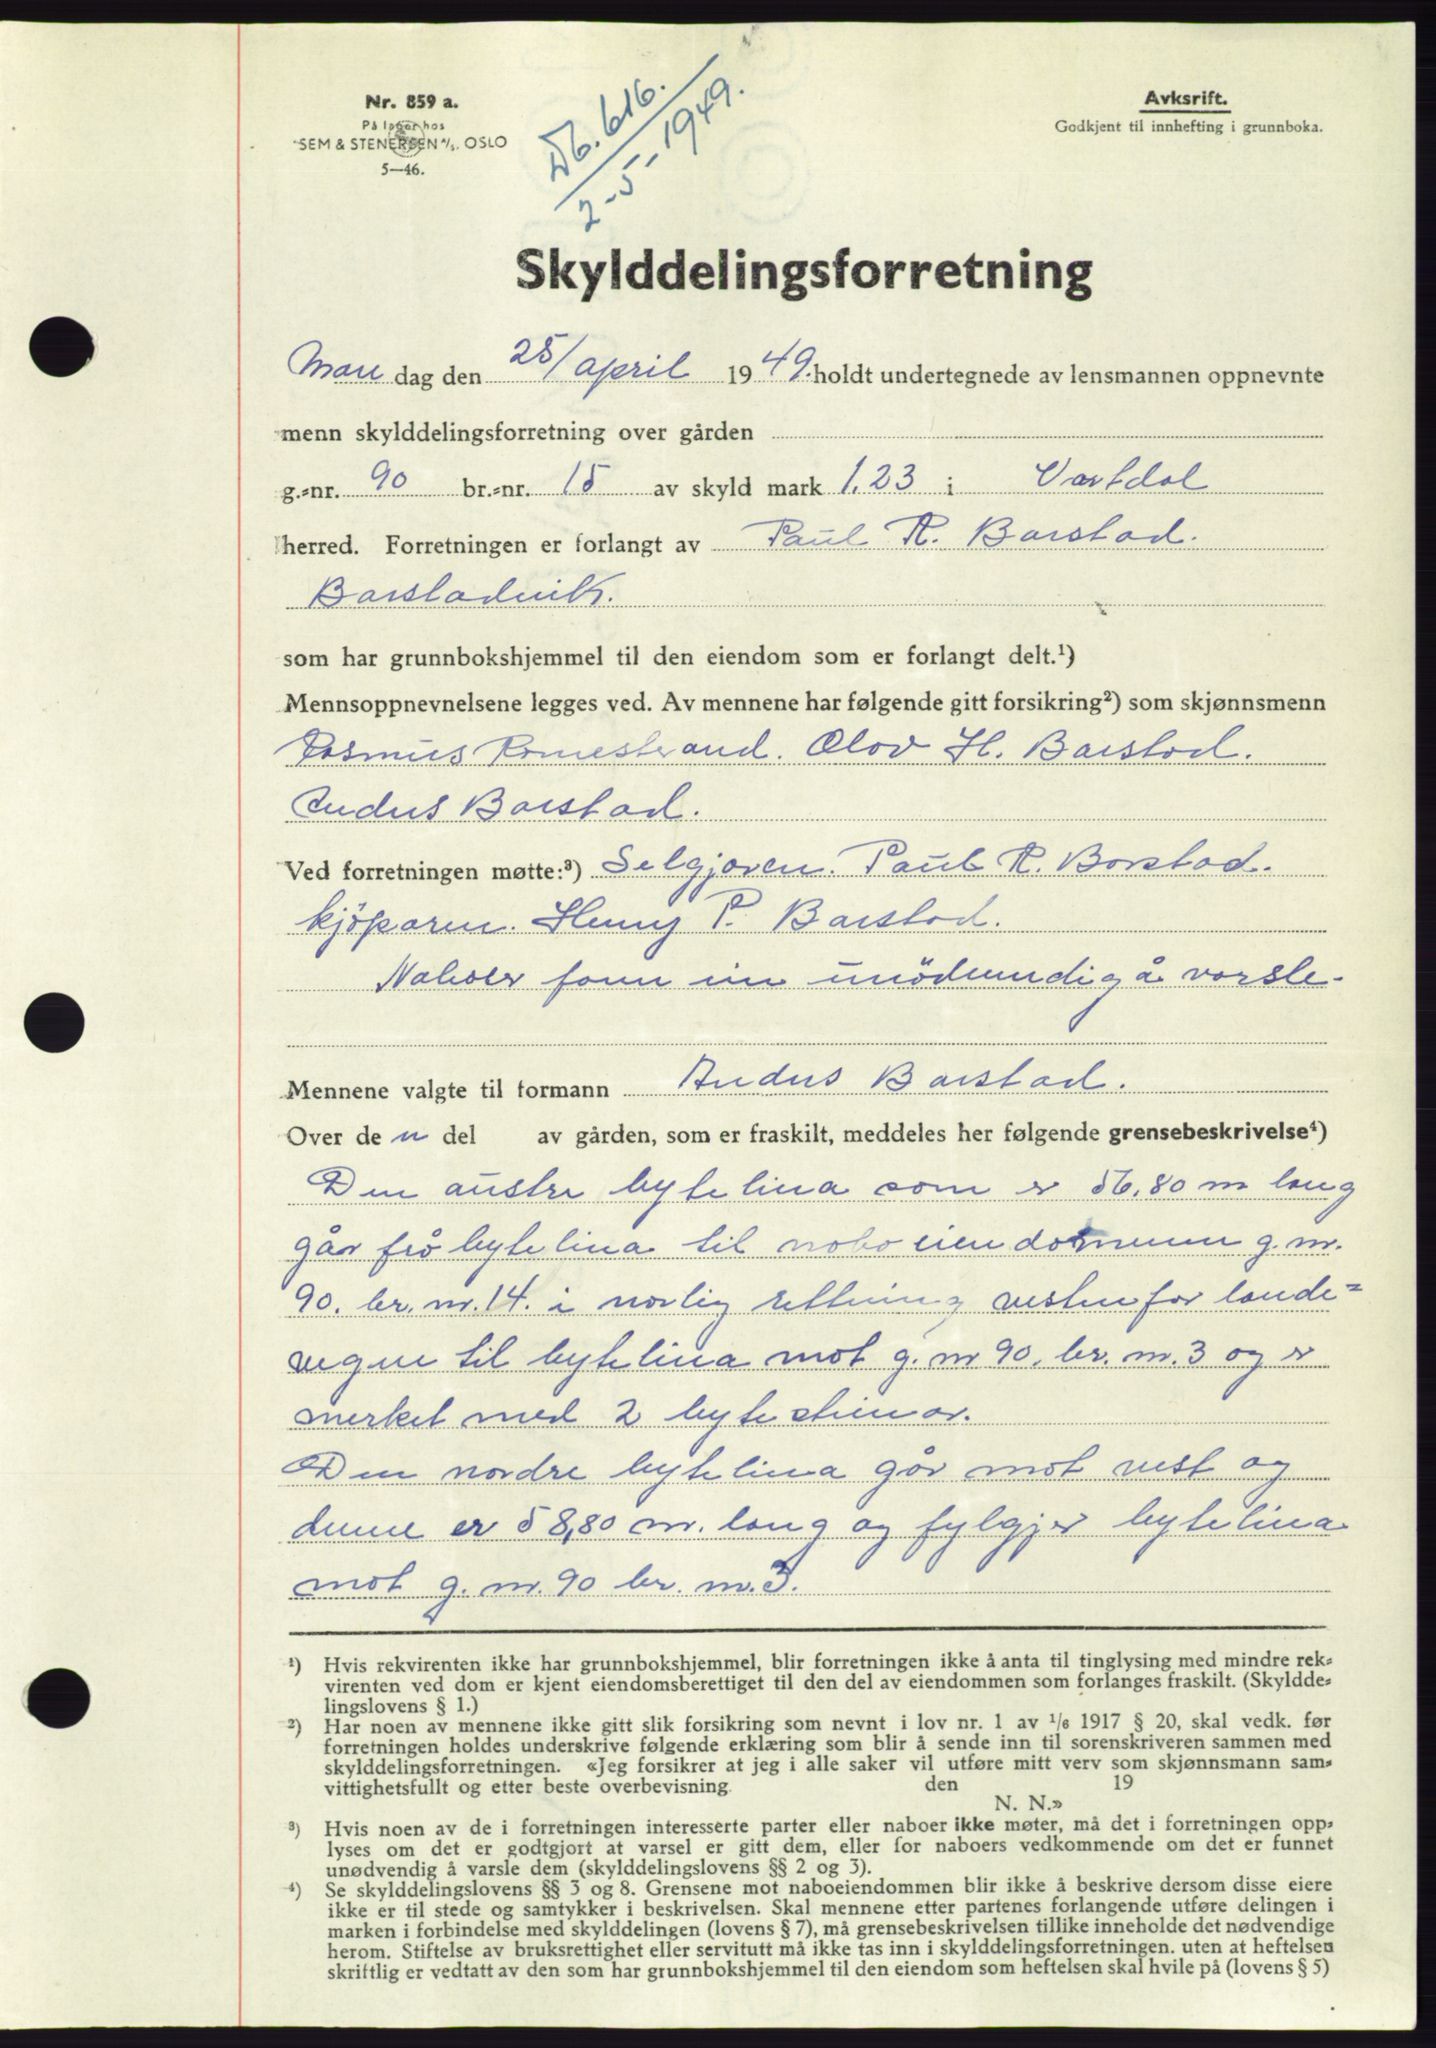 Nr. 859 a.
På lager hos
SEM & STENERSEN A/S. OSLO
5—46.
Db. 616.
2-5-1949.
Avksrift.
Godkjent til innhefting i grunnboka.
Skylddelingsforretning
Mandag den 25/april 1949. holdt undertegnede av lensmannen oppnevnte
menn skylddelingsforretning over gården
g.=nr. 90 br.=nr. 15 av skyld mark 1,23 i Vartdal
herred. Forretningen er forlangt av Paul R. Barstad.
Barstadvik.
som har grunnbokshjemmel til den eiendom som er forlangt delt.¹)
Mennsoppnevnelsene legges ved. Av mennene har følgende gitt forsikring²) som skjønnsmenn
Rasmus Romestrand. Olav H. Barstad.
Anders Barstad.
Ved forretningen møtte:³) Selgjaren. Paul R. Barstad.
kjöparen. Henry P. Barstad.
Naboer fann ein unödvendig å varsle.
Mennene valgte til formann Anders Barstad.
Over den del av gården, som er fraskilt, meddeles her følgende grensebeskrivelse⁴)
Den austre bytelina som er 56,80 m lang
går frå bytelina til naboeiendommen g. nr.
90. br. nr. 14. i norlig rettning vestenfor lande=
vegen til bytelina mot g. nr 90. br. nr. 3 og er
merket med 2 bytesteinar.
Den nordre bytelina går mot vest og
denne er 58,80 m. lang og fylgjer bytelina
mot g. nr. 90 br. nr. 3.
¹) Hvis rekvirenten ikke har grunnbokshjemmel, blir forretningen ikke å anta til tinglysing med mindre rek=
virenten ved dom er kjent eiendomsberettiget til den del av eiendommen som forlanges fraskilt. (Skyldde=
lingslovens § 1.)
²) Har noen av mennene ikke gitt slik forsikring som nevnt i lov nr. 1 av 1/6 1917 § 20, skal vedk. før
forretningen holdes underskrive følgende erklæring som blir å sende inn til sorenskriveren sammen med
skylddelingsforretningen. «Jeg forsikrer at jeg i alle saker vil utføre mitt verv som skjønnsmann sam=
vittighetsfullt og etter beste overbevisning. den 19
N. N.»
³) Hvis noen av de i forretningen interesserte parter eller naboer ikke møter, må det i forretningen opp=
lyses om det er godtgjort at varsel er gitt dem, eller for naboers vedkommende om det er funnet
unødvendig å varsle dem (skylddelingslovens §§ 2 og 3).
⁴) Se skylddelingslovens §§ 3 og 8. Grensene mot naboeiendommen blir ikke å beskrive dersom disse eiere
ikke er til stede og samtykker i beskrivelsen. Skal mennene etter partenes forlangende utføre delingen i
marken i forbindelse med skylddelingen (lovens § 7), må grensebeskrivelsen tillike inneholde det nødvendige
herom. Stiftelse av bruksrettighet eller servitutt må ikke tas inn i skylddelingsforretningen. uten at heftelsen
skriftlig er vedtatt av den som har grunnbokshjemmel til den eiendom som heftelsen skal hvile på (lovens § 5)